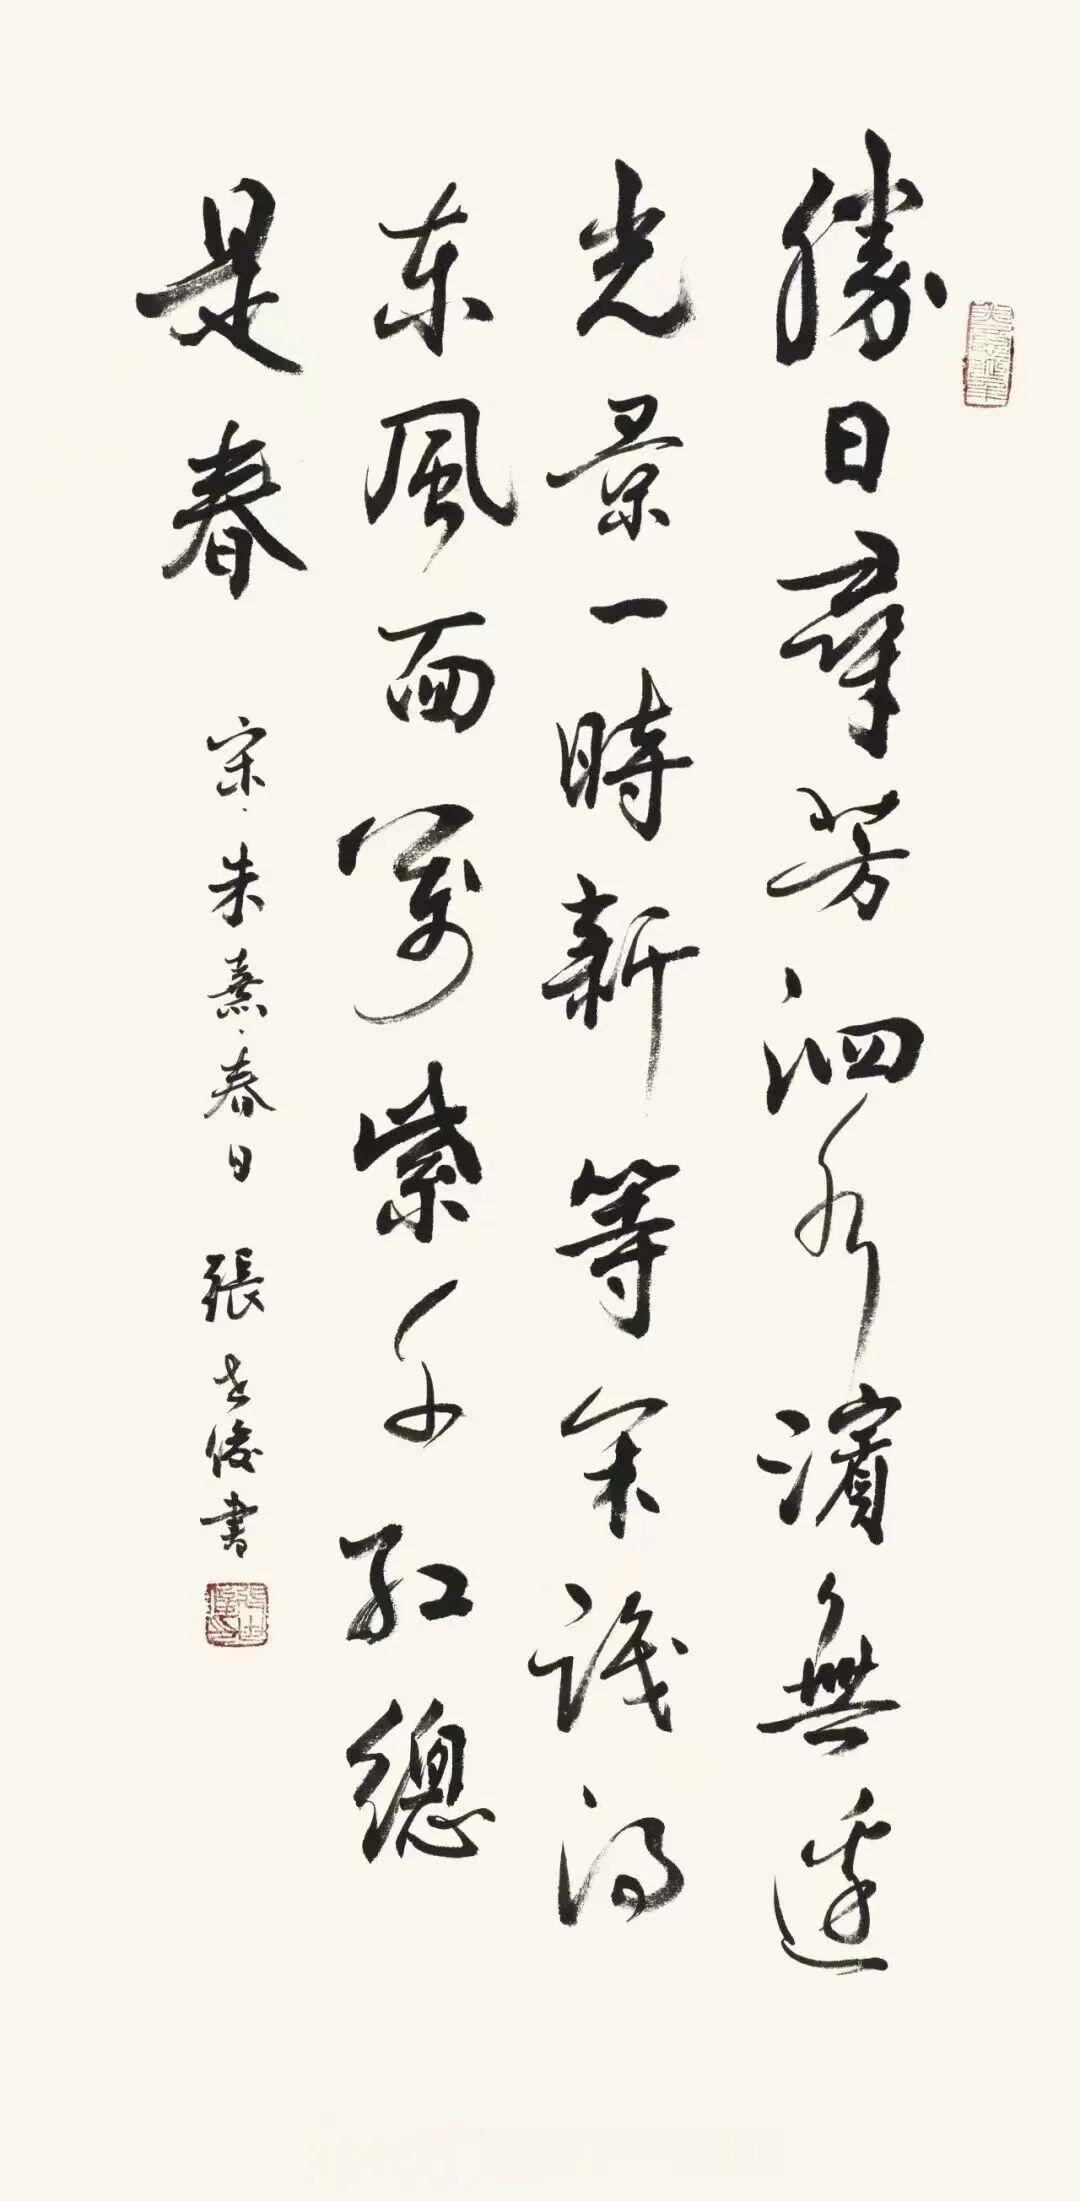 勝日尋芳泗水濱無邊
光景一時新等閑識得
東風面萬紫千紅總
是春
宋·朱熹·春日 張世俊書